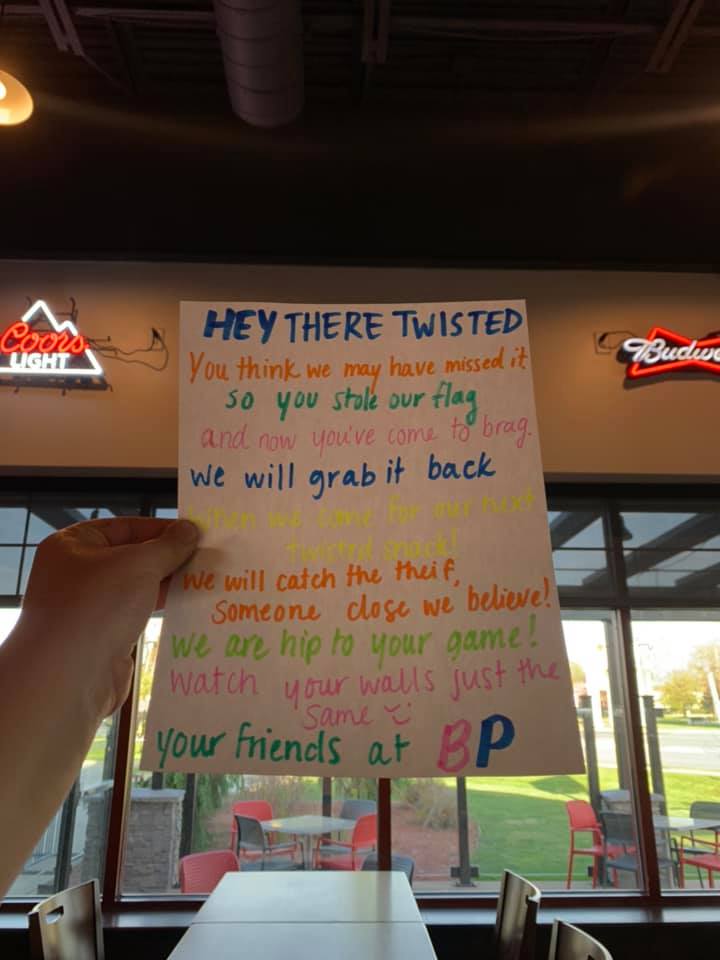 Coors
LIGHT
Budw
HEY THERE TWISTED
You think we may have missed it
so you stole our flag
and now you've come to brag.
We will grab it back
When we come for our next
twisted snack!
We will catch the theif,
Someone close we believe!
We are hip to your game!
Watch your walls just the
same
your friends at BP